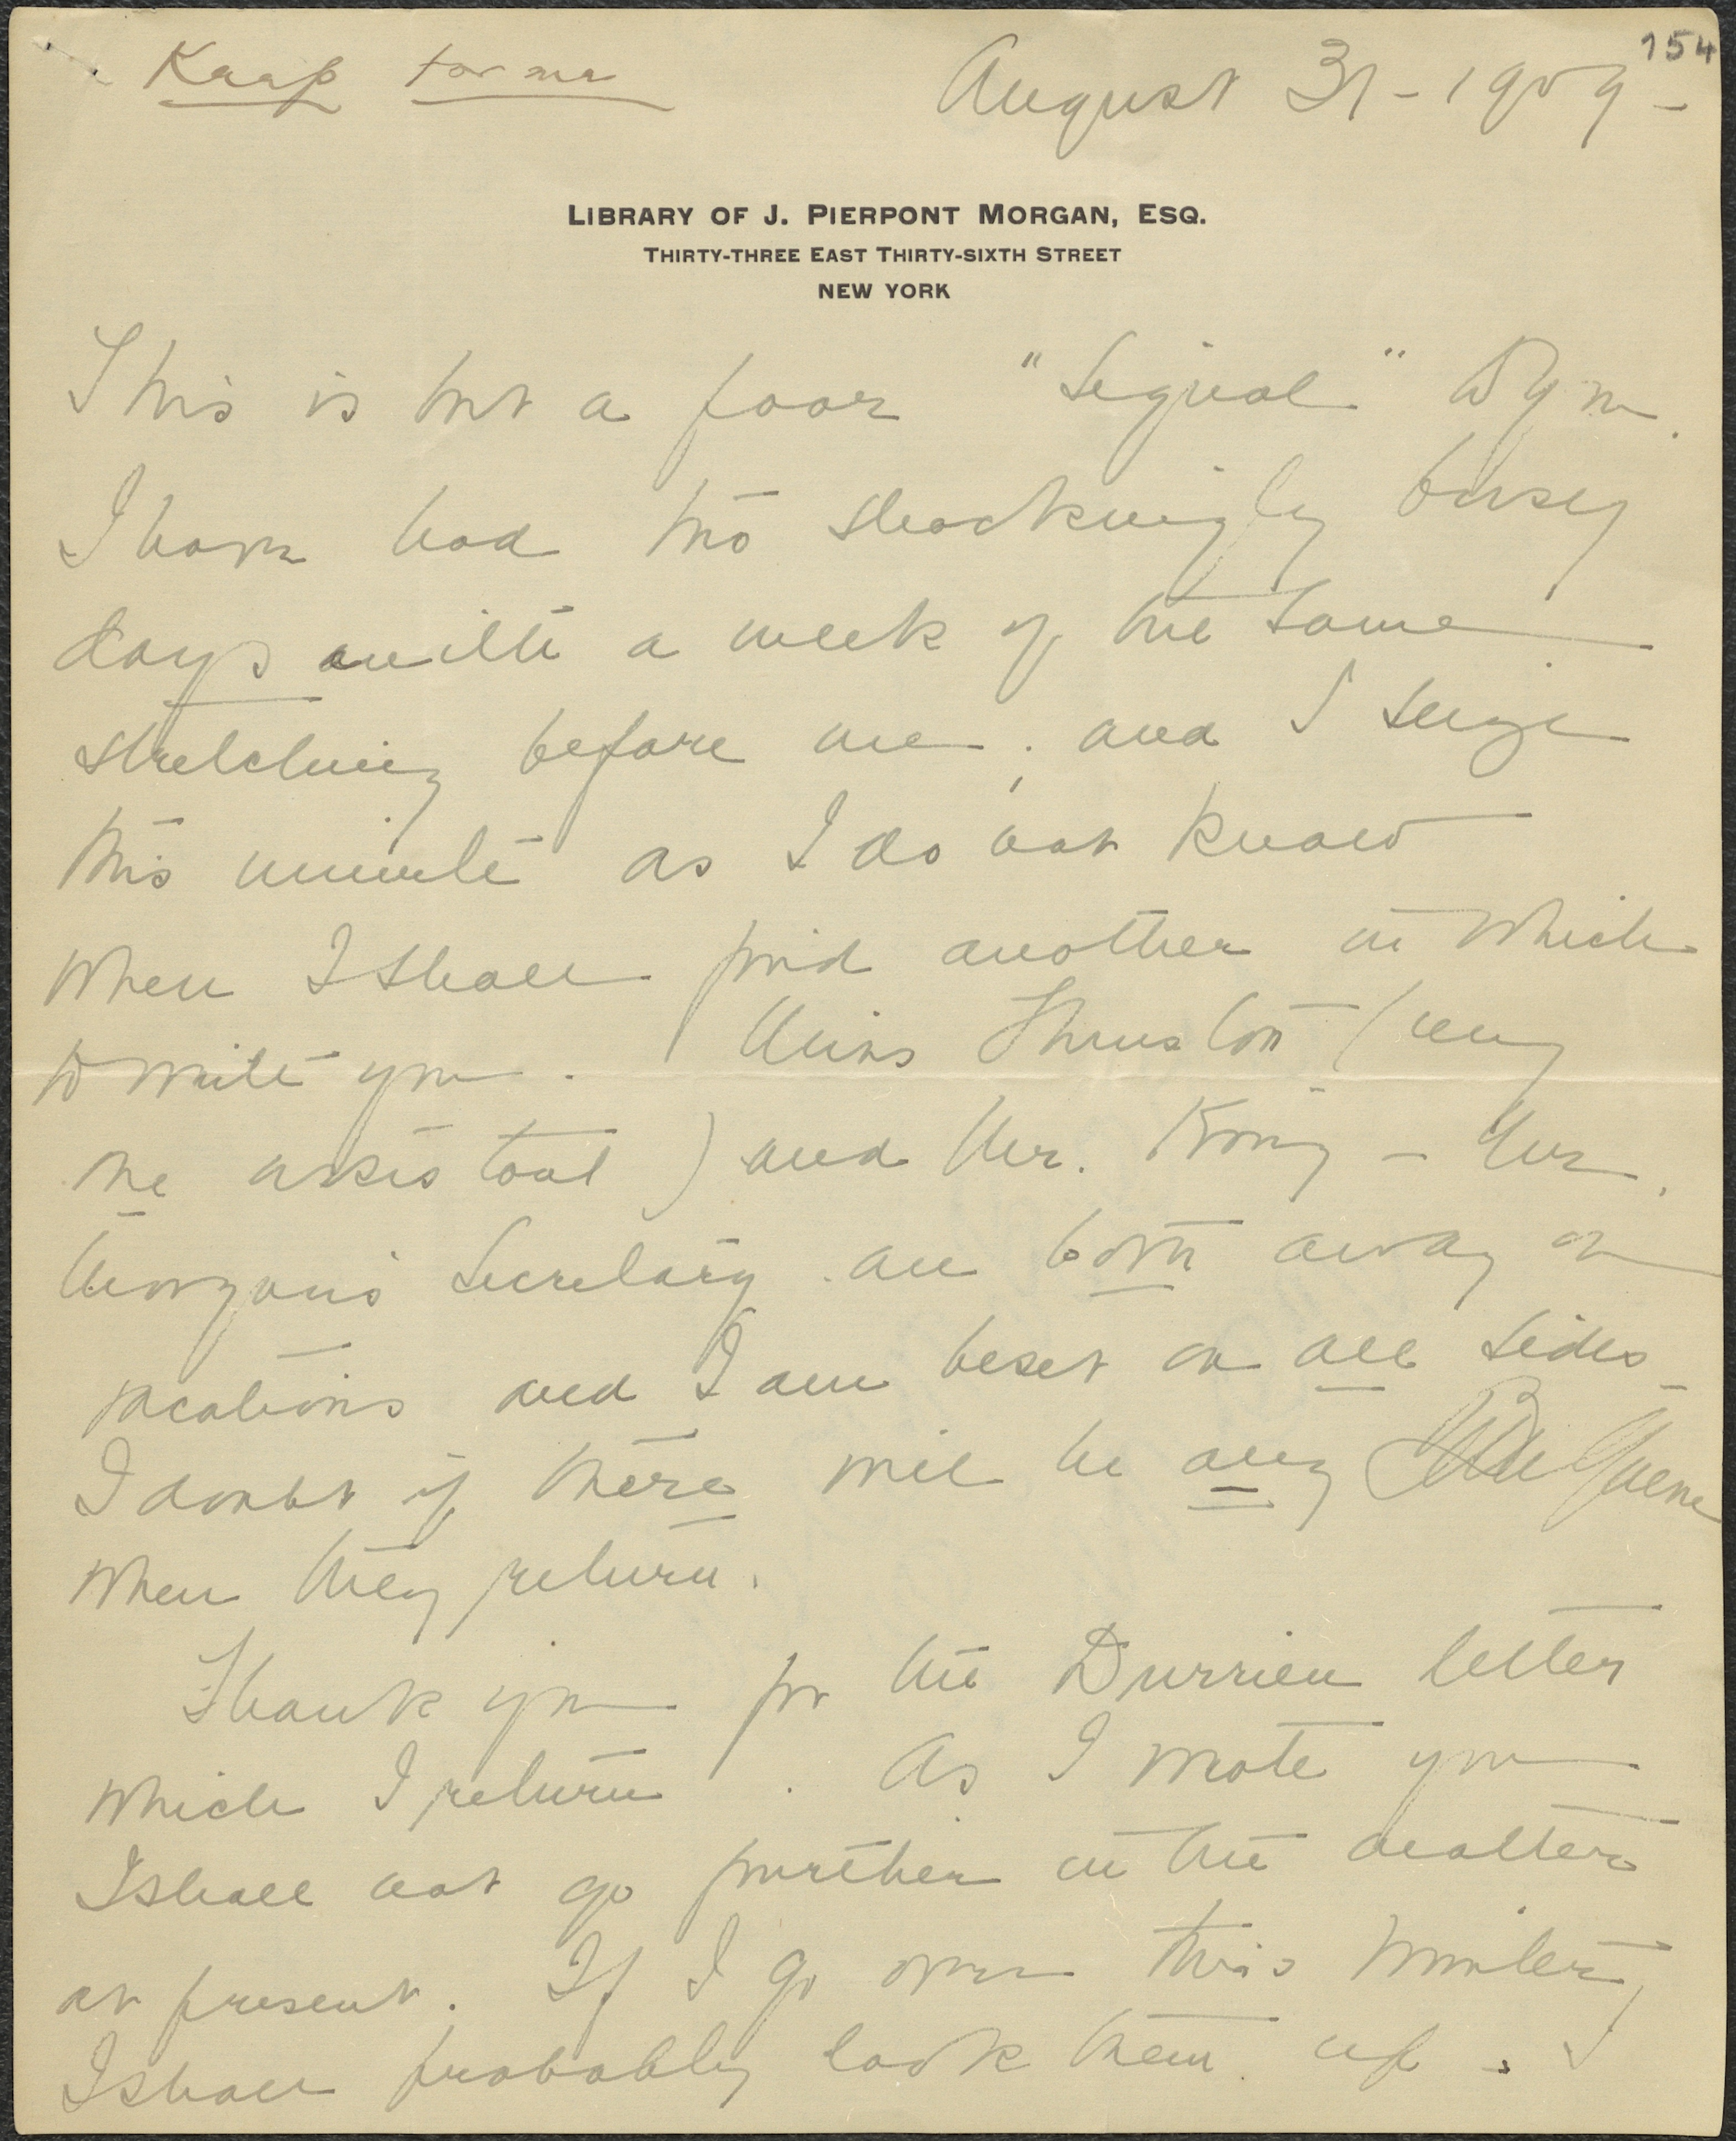 Keep for me
August 31 - 1909 -
154
LIBRARY OF J. PIERPONT MORGAN, ESQ.
THIRTY-THREE EAST THIRTY-SIXTH STREET
NEW YORK
This is but a poor "signal"
I have had two shockingly busy
days with a week of the same
stretching before me; and I seize
this minute as I do not know
when I shall find another in which
to write you. Miss Thurston (my
assistant) and Mr. King - Mr.
Morgan's Secretary are both away on
vacations and I am beset on all sides -
I doubt if there will be any Greene
when they return.
Thank you for the Durrieu letter
which I return. As I wrote you
I shall not go further in the matter
at present. If I go over this winter,
I shall probably look them up.